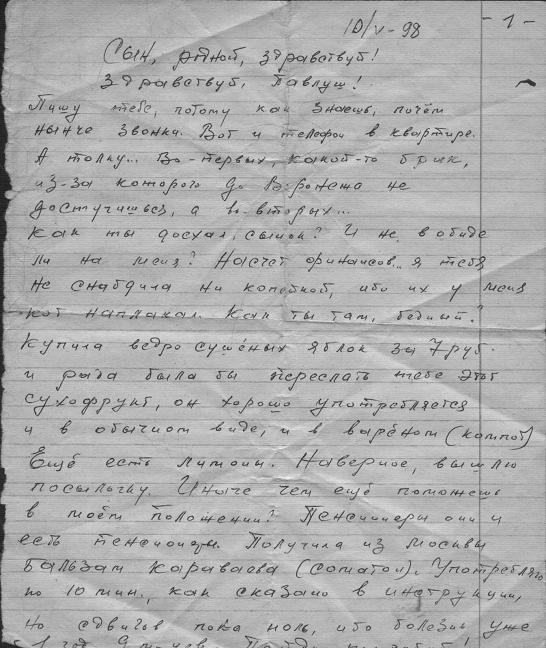 10/V-98 - 1 -
Сын, родной, здравствуй!
Здравствуй, Павлуш!
Пишу тебе, потому как знаешь, почём
нынче звонки. Вот и телефон в квартире.
А толку... Во-первых, какой-то брик,
из-за которого до Воронежа не
достучишься, а во-вторых...
Как ты доехал, сынок? И не в обиде
ли на меня? Насчёт финансов.. я тебя
не снабдила ни копейкой, ибо их у меня
кот наплакал. Как ты там, бедный?
Купила ведро сушёных яблок за 7 руб.
и рада была бы переслать тебе этот
сухофрукт, он хорошо употребляется
и в обычном виде, и в варёном (компот)
Ещё есть лимоны. Наверное, вышлю
посылочку. Иначе чем ещё поможешь
в моём положении? Пенсионеры они и
есть пенсионеры. Получила из Москвы
бальзам Караваева (соматон). Употребляю
по 10 мин., как сказано в инструкции,
но сдвигов пока ноль, ибо болезнь уже
1 год